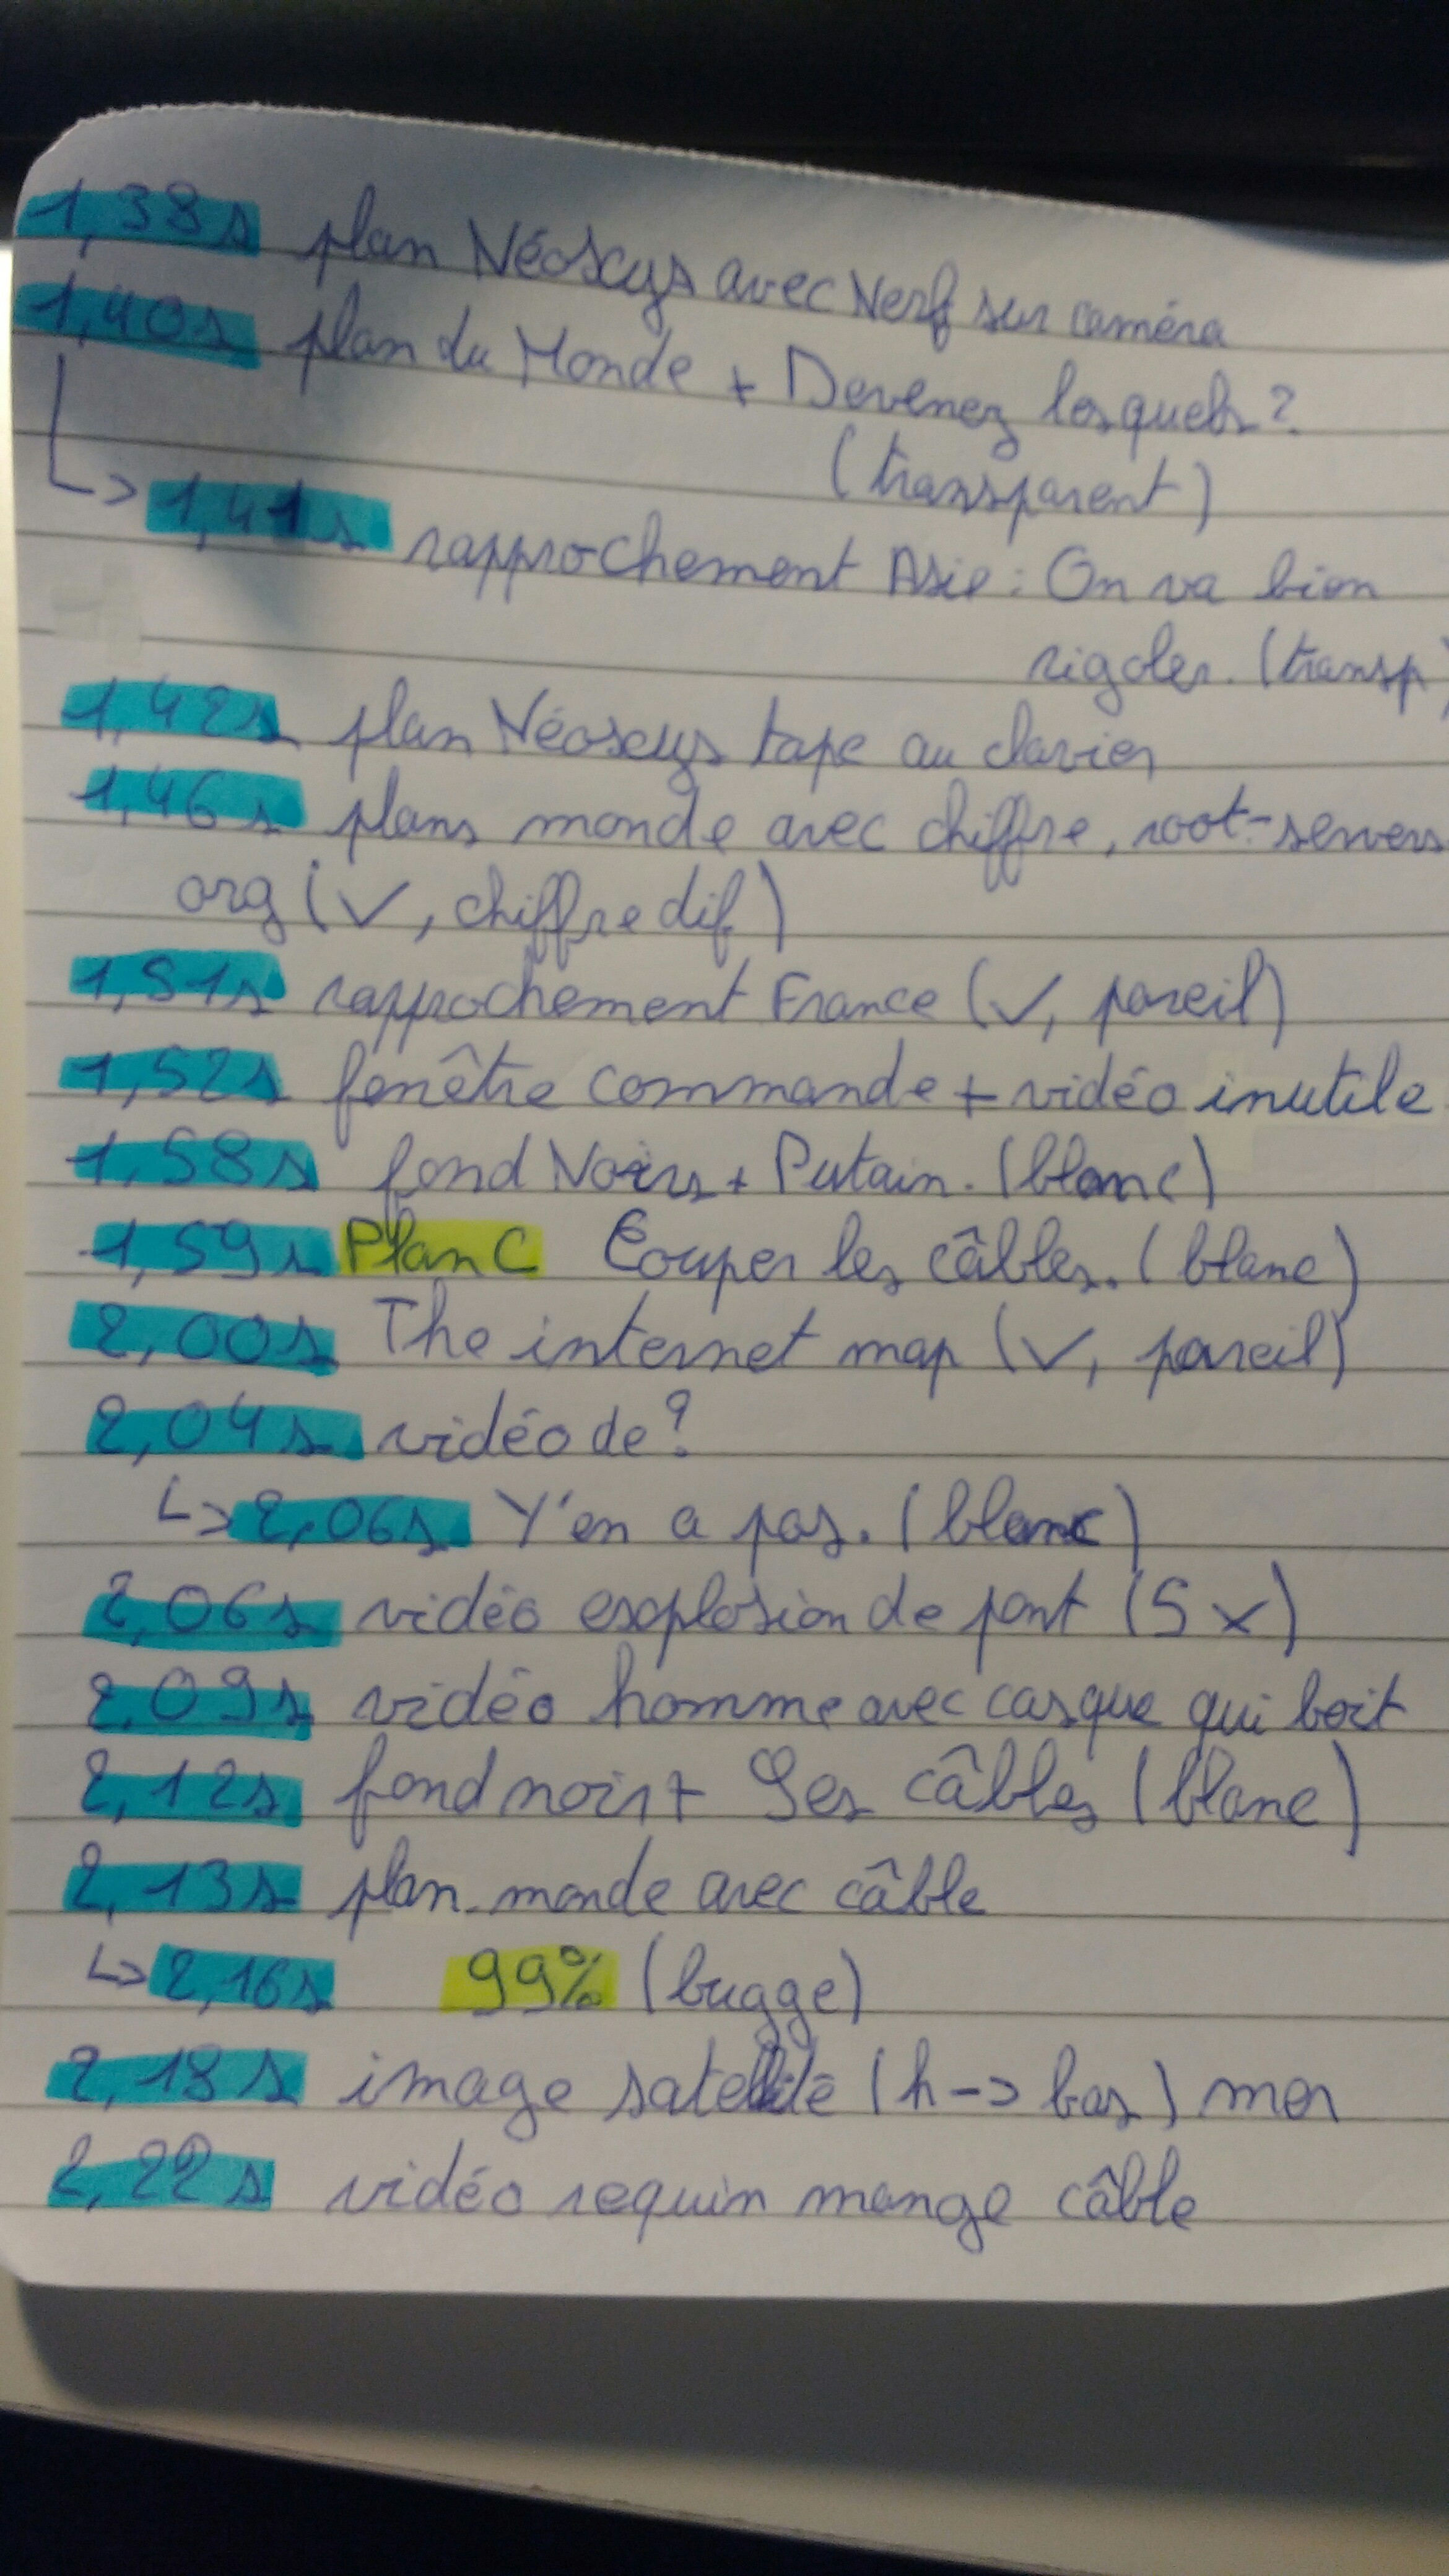 1,38s plan Néoscys avec Nerf sur caméra
1,40s plan du Monde + Devenez lesquels ?
(transparent)
↳ 1,41s rapprochement Asie : On va bien
rigoler. (transp)
1,42s plan Néoscys tape au clavier
1,46s plans monde avec chiffre, root-servers
org (✓, chiffre dif)
1,51s rapprochement France (✓, pareil)
1,52s fenêtre commande + vidéo inutile
1,58s fond Noirs + Putain. (blanc)
1,59s Plan C Couper les câbles. (blanc)
2,00s The internet map (✓, pareil)
2,04s vidéo de ?
↳ 2,06s Y'en a pas. (blanc)
2,06s vidéo explosion de pont (5 x)
2,09s vidéo homme avec casque qui boit
2,12s fond noir + Les câbles (blanc)
2,13s plan monde avec câble
↳ 2,16s 99% (bugge)
2,18s image satellite (h -> bas) mer
2,22s vidéo requin mange câble